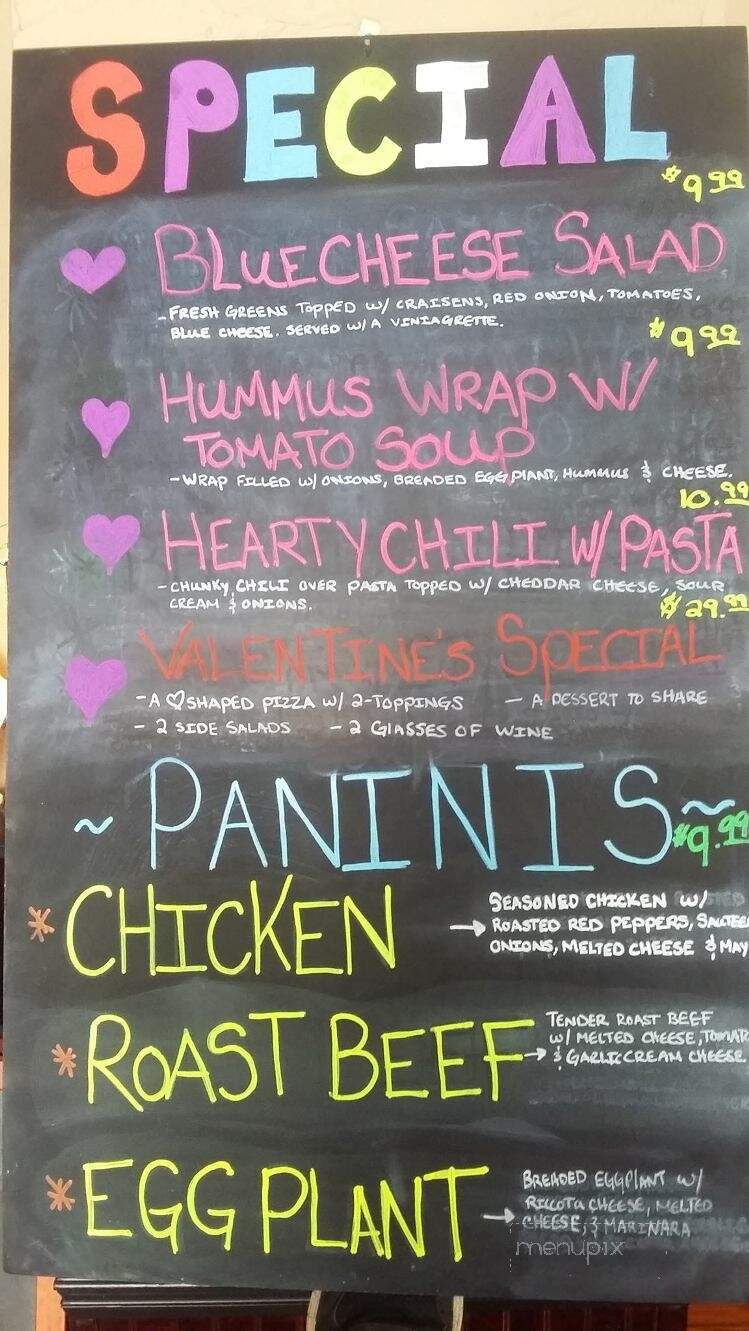 SPECIAL
$9.99
BLUECHEESE SALAD
- FRESH GREENS TOPPED W/ CRAISENS, RED ONION, TOMATOES,
BLUE CHEESE. SERVED W/ A VINIAGRETTE.
$9.99
HUMMUS WRAP W/
TOMATO SOUP
- WRAP FILLED W/ ONIONS, BREADED EGGPLANT, HUMMUS & CHEESE.
10.99
HEARTY CHILI W/ PASTA
- CHUNKY CHILI OVER PASTA TOPPED W/ CHEDDAR CHEESE, SOUR
CREAM & ONIONS.
$29.99
VALENTINE'S SPECIAL
- A ♡ SHAPED PIZZA W/ 2-TOPPINGS - A DESSERT TO SHARE
- 2 SIDE SALADS - 2 GLASSES OF WINE
~ PANINIS ~
$9.99
* CHICKEN → SEASONED CHICKEN W/
ROASTED RED PEPPERS, SAUTEE
ONIONS, MELTED CHEESE & MAY
* ROAST BEEF → TENDER ROAST BEEF
W/ MELTED CHEESE, TOMAT
& GARLIC CREAM CHEESE.
* EGGPLANT → BREADED EGGPLANT W/
RICCOTA CHEESE, MELTED
CHEESE, & MARINARA
menupix